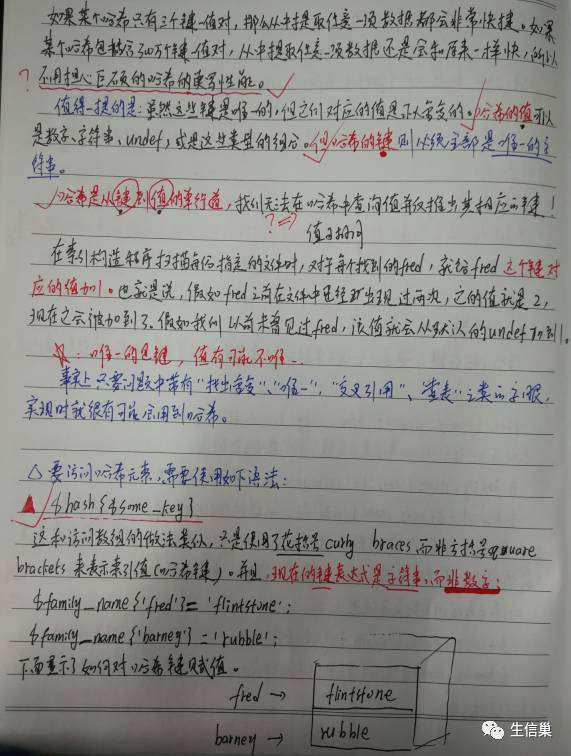 如果某个哈希只有三个键-值对，那么从中提取任意一项数据都会非常快捷。如果
某个哈希包含了300万个键-值对，从中提取任意一项数据还是会和原来一样快，所以
? 不用担心巨硕的哈希的读写性能。
值得一提的是：虽然这些键是唯一的，但它们对应的值是可以重复的。哈希的值可以
是数字、字符串、undef，或是这些类型的组合。但哈希的键则必须全部是唯一的字
符串。
哈希是从键到值的单行道，我们无法在哈希中查询值并反推出其相应的键！
? =>
值
在索引构造程序扫描每份指定的文件时，对于每个找到的fred，就给fred这个键对
应的值加1。也就是说，假如fred之前在文件中已经出现过两次，它的值就是2，
现在它会被加到了3。假如我们以前未曾见过fred，该值就会从默认的undef加到1。
☆：唯一的是键，值有可能不唯一
事实上只要问题中带有“找出重复”、“唯一”、“交叉引用”、“查表”之类的字眼，
实现时就很有可能会用到哈希。
△ 要访问哈希元素，需要使用如下语法：
▲ $hash{$some_key}
这和访问数组的做法类似，只是使用了花括号 curly braces 而非方括号 square
brackets 来表示索引值（哈希键）。并且，现在的键表达式是字符串，而非数字：
$family_name{'fred'} = 'flintstone';
$family_name{'barney'} = 'rubble';
下面显示了如何对哈希键赋值。
fred → flintstone
barney → rubble
生信巢